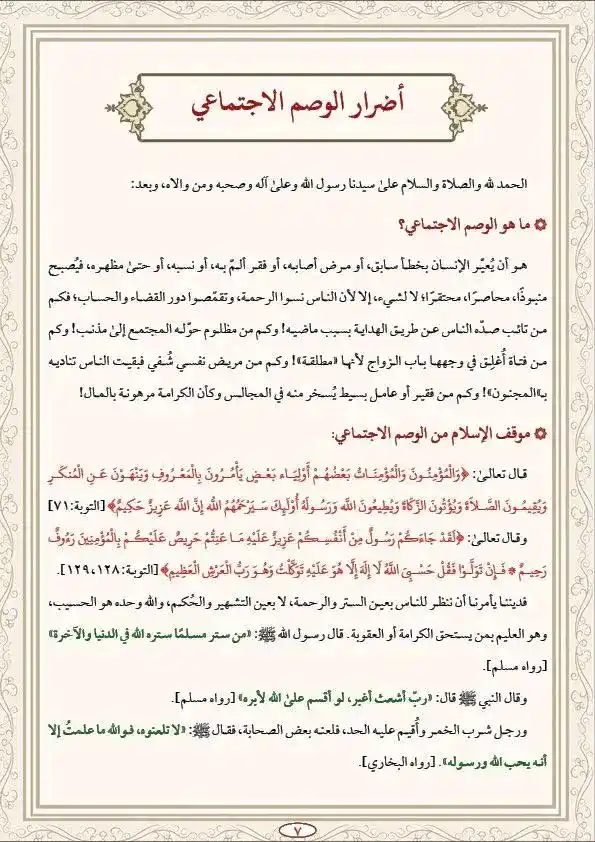 أضرار الوصم الاجتماعي
الحمد لله والصلاة والسلام علىٰ سيدنا رسول الله وعلىٰ آله وصحبه ومن والاه، وبعد:
ما هو الوصم الاجتماعي؟
هو أن يُعيّر الإنسان بخطأ سابق، أو مرض أصابه، أو فقر ألمّ به، أو نسبه، أو حتىٰ مظهره، فيُصبح
منبوذًا، محاصرًا، محتقرًا؛ لا لشيء، إلا لأن الناس نسوا الرحمة، وتقمّصوا دور القضاء والحساب؛ فكم
من تائب صدّه الناس عن طريق الهداية بسبب ماضيه! وكم من مظلوم حوّله المجتمع إلىٰ مذنب! وكم
من فتاة أُغلِق في وجهها باب الزواج لأنها «مطلقة»! وكم من مريض نفسي شُفي فبقيت الناس تناديه
بـ«المجنون»! وكم من فقير أو عامل بسيط يُسخر منه في المجالس وكأن الكرامة مرهونة بالمال!
موقف الإسلام من الوصم الاجتماعي:
قال تعالىٰ: ﴿وَالْمُؤْمِنُونَ وَالْمُؤْمِنَاتُ بَعْضُهُمْ أَوْلِيَاء بَعْضٍ يَأْمُرُونَ بِالْمَعْرُوفِ وَيَنْهَوْنَ عَنِ الْمُنكَرِ
وَيُقِيمُونَ الصَّلاَةَ وَيُؤْتُونَ الزَّكَاةَ وَيُطِيعُونَ اللَّه وَرَسُولَهُ أُوْلَئِكَ سَيَرْحَمُهُمُ اللَّهُ إِنَّ اللَّه عَزِيزٌ حَكِيمٌ﴾ [التوبة:٧١]
وقال تعالىٰ: ﴿لَقَدْ جَاءَكُمْ رَسُولٌ مِنْ أَنْفُسِكُمْ عَزِيزٌ عَلَيْهِ مَا عَنِتُّمْ حَرِيصٌ عَلَيْكُمْ بِالْمُؤْمِنِينَ رَءُوفٌ
رَحِيمٌ * فَإِن تَوَلَّوْا فَقُلْ حَسْبِيَ اللَّهُ لَا إِلَهَ إِلَّا هُوَ عَلَيْهِ تَوَكَّلْتُ وَهُوَ رَبُّ الْعَرْشِ الْعَظِيمِ﴾ [التوبة:١٢٨، ١٢٩].
فديننا يأمرنا أن ننظر للناس بعين الستر والرحمة، لا بعين التشهير والحُكم، والله وحده هو الحسيب،
وهو العليم بمن يستحق الكرامة أو العقوبة. قال رسول الله ﷺ: «من ستر مسلمًا ستره الله في الدنيا والآخرة»
[رواه مسلم].
وقال النبي ﷺ قال: «ربّ أشعث أغبر، لو أقسم علىٰ الله لأبره» [رواه مسلم].
ورجل شرب الخمر وأُقيم عليه الحد، فلعنه بعض الصحابة، فقال ﷺ: «لا تلعنوه، فوالله ما علمتُ إلا
أنه يحب الله ورسوله». [رواه البخاري].
٧